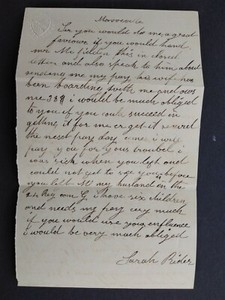 Sir you would do me a great
faviour if you would hand
Mr. this in closed
letter and also speak to him about
sending me my pay his wife has
been boarding with me and owes
me 388 i would be much obliged
to you if you could succeed in
getting it for me or get it
the next pay day and i will
pay you for your trouble i
was sick when you left and
could not get to see you before
you left My husband in the
Reg com G I have six children
and needs my pay very much
if you would use your enfluence
i would be very much obliged
Sarah Rider